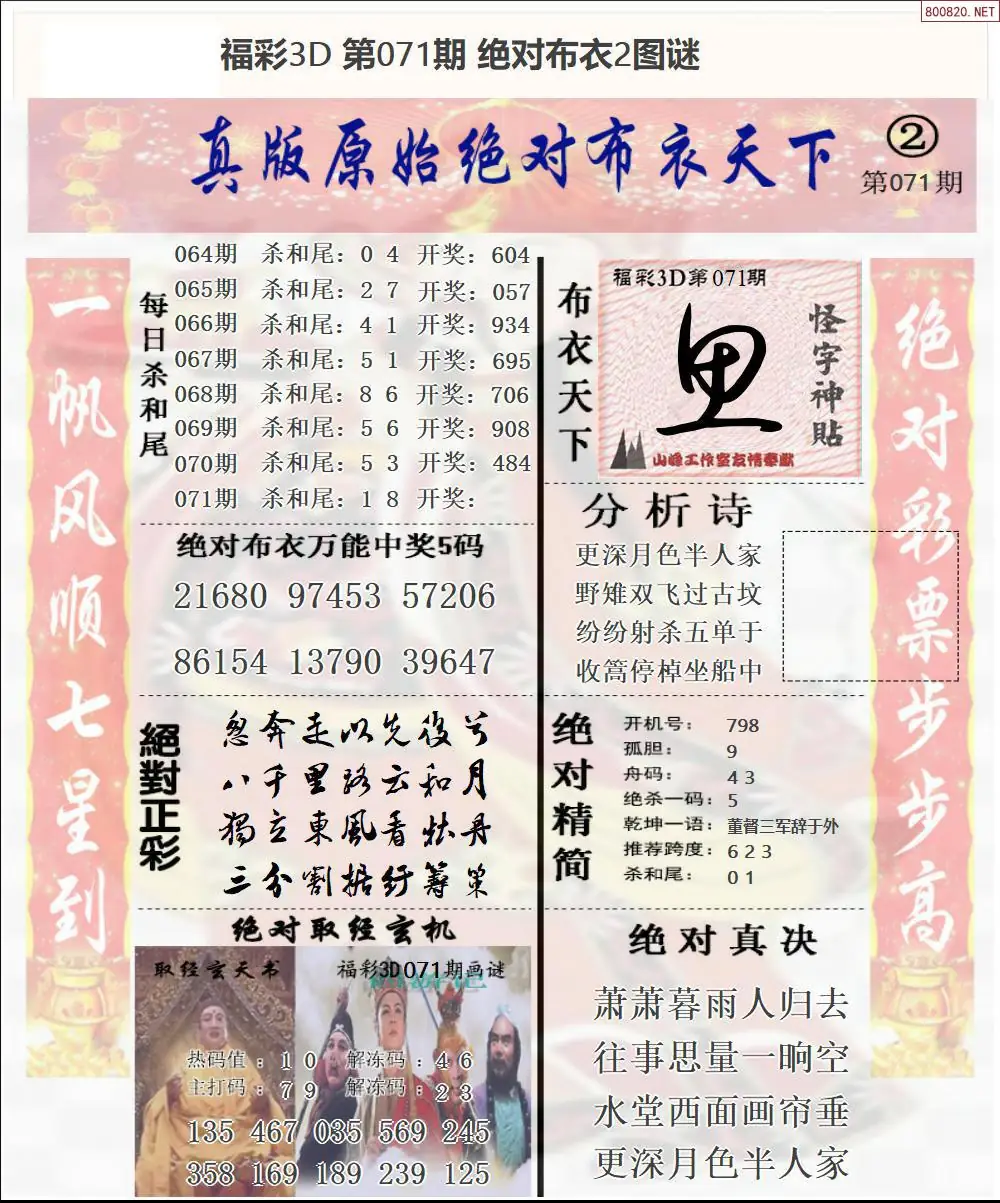 800820.NET
福彩3D 第071期 绝对布衣2图谜
真版原始绝对布衣天下
②
第071期
一帆风顺七星到
每日杀和尾
064期 杀和尾：0 4 开奖：604
065期 杀和尾：2 7 开奖：057
066期 杀和尾：4 1 开奖：934
067期 杀和尾：5 1 开奖：695
068期 杀和尾：8 6 开奖：706
069期 杀和尾：5 6 开奖：908
070期 杀和尾：5 3 开奖：484
071期 杀和尾：1 8 开奖：
绝对布衣万能中奖5码
21680 97453 57206
86154 13790 39647
絕對正彩
忽奔走以先後兮
八千里路云和月
獨立東風看牡丹
三分割据纡籌策
绝对取经玄机
取经玄天书
福彩3D071期画谜
热码值：1 0 解冻码：4 6
主打码：7 9 解冻码：2 3
135 467 035 569 245
358 169 189 239 125
布衣天下
福彩3D第071期
怪字神貼
山峰工作室友情奉献
分析诗
更深月色半人家
野雉双飞过古坟
纷纷射杀五单于
收篙停棹坐船中
绝对精简
开机号：798
孤胆：9
舟码：4 3
绝杀一码：5
乾坤一语：董督三军辞于外
推荐跨度：6 2 3
杀和尾：0 1
绝对真决
萧萧暮雨人归去
往事思量一晌空
水堂西面画帘垂
更深月色半人家
绝对彩票步步高